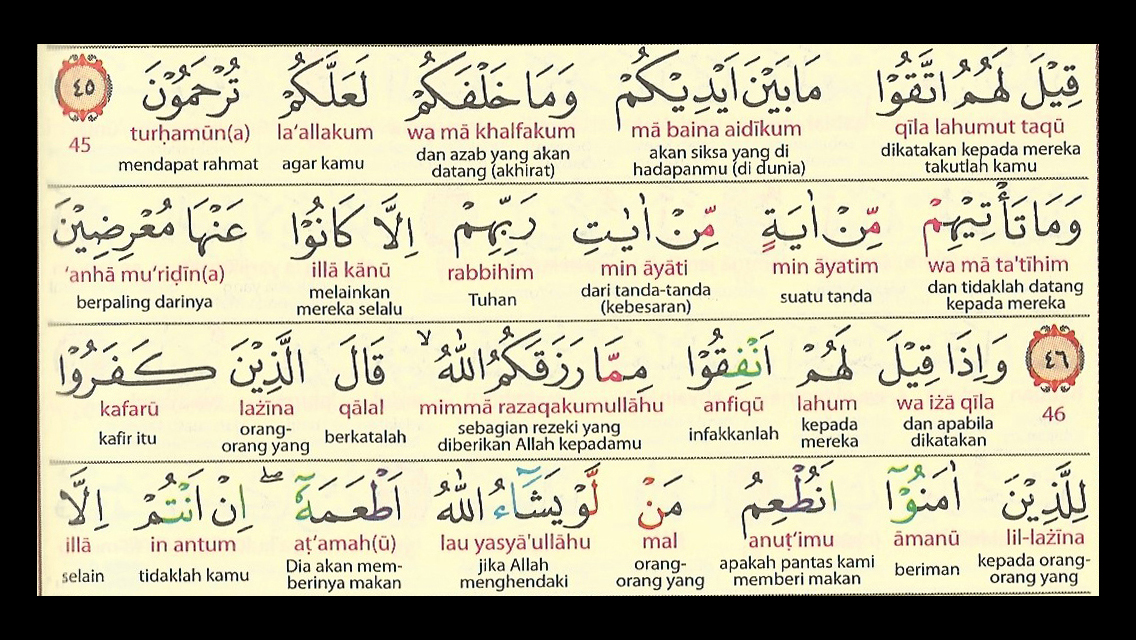 قِيْلَ لَهُمُ اتَّقُوْا مَا بَيْنَ اَيْدِيْكُمْ وَمَا خَلْفَكُمْ لَعَلَّكُمْ تُرْحَمُوْنَ ٤٥
qīla lahumut taqū mā baina aidīkum wa mā khalfakum la‘allakum turḥamūn(a) 45
dikatakan kepada mereka takutlah kamu akan siksa yang di hadapanmu (di dunia) dan azab yang akan datang (akhirat) agar kamu mendapat rahmat
وَمَا تَأْتِيْهِمْ مِّنْ اٰيَةٍ مِّنْ اٰيٰتِ رَبِّهِمْ اِلَّا كَانُوْا عَنْهَا مُعْرِضِيْنَ
wa mā ta'tīhim min āyatim min āyāti rabbihim illā kānū ‘anhā mu‘riḍīn(a)
dan tidaklah datang kepada mereka suatu tanda dari tanda-tanda (kebesaran) Tuhan melainkan mereka selalu berpaling darinya
٤٦ وَاِذَا قِيْلَ لَهُمْ اَنْفِقُوْا مِمَّا رَزَقَكُمُ اللّٰهُ ۙ قَالَ الَّذِيْنَ كَفَرُوْا
46 wa iżā qīla lahum anfiqū mimmā razaqakumullāhu qālal lażīna kafarū
dan apabila dikatakan kepada mereka infakkanlah sebagian rezeki yang diberikan Allah kepadamu berkatalah orang-orang yang kafir itu
لِلَّذِيْنَ اٰمَنُوْٓا اَنُطْعِمُ مَنْ لَّوْ يَشَاۤءُ اللّٰهُ اَطْعَمَهٗٓ ۖ اِنْ اَنْتُمْ اِلَّا
lil-lażīna āmanū anuṭ‘imu mal lau yasyā'ullāhu aṭ‘amah(ū) in antum illā
kepada orang-orang yang beriman apakah pantas kami memberi makan orang-orang yang jika Allah menghendaki Dia akan mem-berinya makan tidaklah kamu selain